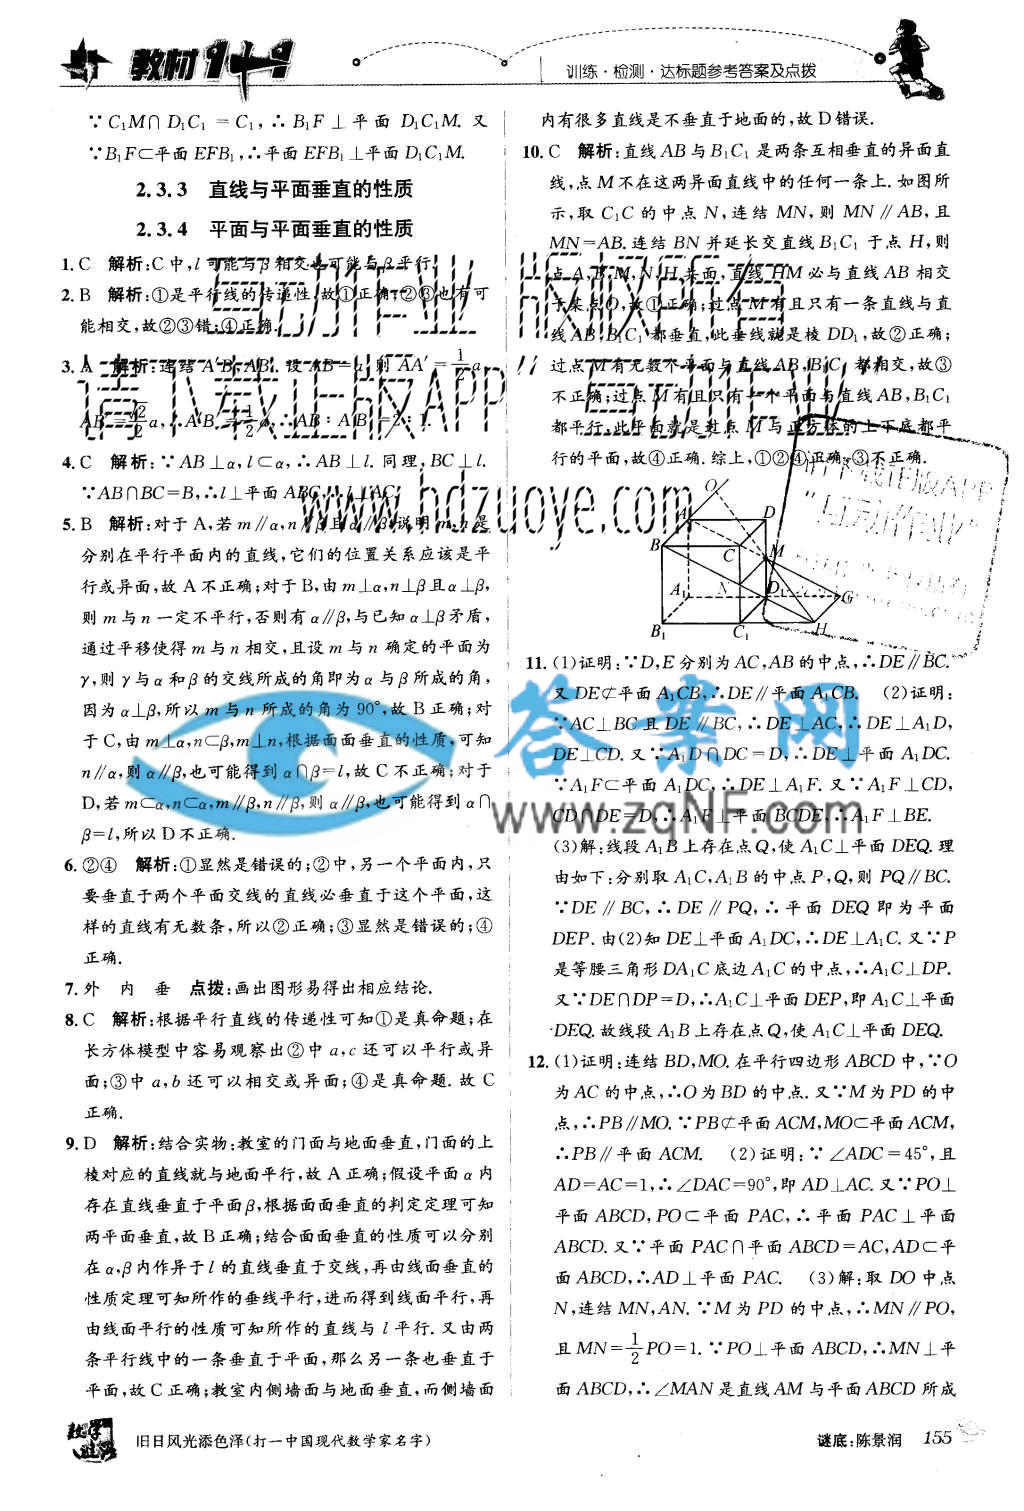 教材1+1
训练·检测·达标题参考答案及点拨
∵C₁M∩D₁C₁=C₁,∴B₁F⊥平面 D₁C₁M. 又
∵B₁F⊂平面EFB₁,∴平面EFB₁⊥平面D₁C₁M.
2.3.3 直线与平面垂直的性质
2.3.4 平面与平面垂直的性质
1. C 解析:C中,l可能与β相交也可能与β平行.
2. B 解析:①是平行线的传递性,故①正确;②③也有可
能相交,故②③错;④正确.
3. A 解析:连结A′B,AB′.设AB=a,则AA′=1/2a,
4. C 解析:∵AB⊥α,l⊂α,∴AB⊥l.同理,BC⊥l.
∵AB∩BC=B,∴l⊥平面ABC,∴l⊥AC.
5. B 解析:对于A,若m∥α,n∥β且α∥β,说明m,n是
分别在平行平面内的直线,它们的位置关系应该是平
行或异面,故A不正确;对于B,由m⊥α,n⊥β且α⊥β,
则m与n一定不平行,否则有α∥β,与已知α⊥β矛盾,
通过平移使得m与n相交,且设m与n确定的平面为
γ,则γ与α和β的交线所成的角即为α与β所成的角,
因为α⊥β,所以m与n所成的角为90°,故B正确;对
于C,由m⊥α,n⊂β,m⊥n,根据面面垂直的性质,可知
n∥α,则α∥β,也可能得到α∩β=l,故C不正确;对于
D,若m⊂α,n⊂α,m∥β,n∥β,则α∥β,也可能得到α∩
β=l,所以D不正确.
6. ②④ 解析:①显然是错误的;②中,另一个平面内,只
要垂直于两个平面交线的直线必垂直于这个平面,这
样的直线有无数条,所以②正确;③显然是错误的;④
正确.
7. 外 内 垂 点拨:画出图形易得出相应结论.
8. C 解析:根据平行直线的传递性可知①是真命题;在
长方体模型中容易观察出②中a,c还可以平行或异
面;③中a,b还可以相交或异面;④是真命题.故C
正确.
9. D 解析:结合实物:教室的门面与地面垂直,门面的上
棱对应的直线就与地面平行,故A正确;假设平面α内
存在直线垂直于平面β,根据面面垂直的判定定理可知
两平面垂直,故B正确;结合面面垂直的性质可以分别
在α,β内作异于l的直线垂直于交线,再由线面垂直的
性质定理可知所作的垂线平行,进而得到线面平行,再
由线面平行的性质可知所作的直线与l平行.又由两
条平行线中的一条垂直于平面,那么另一条也垂直于
平面,故C正确;教室内侧墙面与地面垂直,而侧墙面
内有很多直线是不垂直于地面的,故D错误.
10. C 解析:直线AB与B₁C₁是两条互相垂直的异面直
线,点M不在这两异面直线中的任何一条上.如图所
示,取C₁C的中点N,连结MN,则MN∥AB,且
MN=AB.连结BN并延长交直线B₁C₁于点H,则
点A,B,M,N,H共面,直线HM必与直线AB相交
于某点O,故①正确;过点M有且只有一条直线与直
线AB,B₁C₁都垂直,此垂线就是棱DD₁,故②正确;
过点M有无数个平面与直线AB,B₁C₁都相交,故③
不正确;过点M有且只有一个平面与直线AB,B₁C₁
都平行,此平面就是过点M与正方体的上下底都平
行的平面,故④正确.综上,①②④正确,③不正确.
O
A D
B C M
A₁ N D₁ G
B₁ C₁ H
11. (1)证明:∵D,E分别为AC,AB的中点,∴DE∥BC.
又DE⊄平面A₁CB,∴DE∥平面A₁CB. (2)证明:
∵AC⊥BC且DE∥BC,∴DE⊥AC,∴DE⊥A₁D,
DE⊥CD.又∵A₁D∩DC=D,∴DE⊥平面A₁DC.
∵A₁F⊂平面A₁DC,∴DE⊥A₁F.又∵A₁F⊥CD,
CD∩DE=D,∴A₁F⊥平面BCDE,∴A₁F⊥BE.
(3)解:线段A₁B上存在点Q,使A₁C⊥平面DEQ.理
由如下:分别取A₁C,A₁B的中点P,Q,则PQ∥BC.
∵DE∥BC,∴DE∥PQ,∴平面DEQ即为平面
DEP.由(2)知DE⊥平面A₁DC,∴DE⊥A₁C.又∵P
是等腰三角形DA₁C底边A₁C的中点,∴A₁C⊥DP.
又∵DE∩DP=D,∴A₁C⊥平面DEP,即A₁C⊥平面
DEQ.故线段A₁B上存在点Q,使A₁C⊥平面DEQ.
12. (1)证明:连结BD,MO.在平行四边形ABCD中,∵O
为AC的中点,∴O为BD的中点.又∵M为PD的中
点,∴PB∥MO.∵PB⊄平面ACM,MO⊂平面ACM,
∴PB∥平面ACM. (2)证明:∵∠ADC=45°,且
AD=AC=1,∴∠DAC=90°,即AD⊥AC.又∵PO⊥
平面ABCD,PO⊂平面PAC,∴平面PAC⊥平面
ABCD.又∵平面PAC∩平面ABCD=AC,AD⊂平
面ABCD,∴AD⊥平面PAC. (3)解:取DO中点
N,连结MN,AN.∵M为PD的中点,∴MN∥PO,
且MN=1/2PO=1.∵PO⊥平面ABCD,∴MN⊥平
面ABCD,∴∠MAN是直线AM与平面ABCD所成
旧日风光添色泽(打一中国现代数学家名字)
谜底:陈景润 155
答案网
www.zqNF.com
www.hdzuoye.com